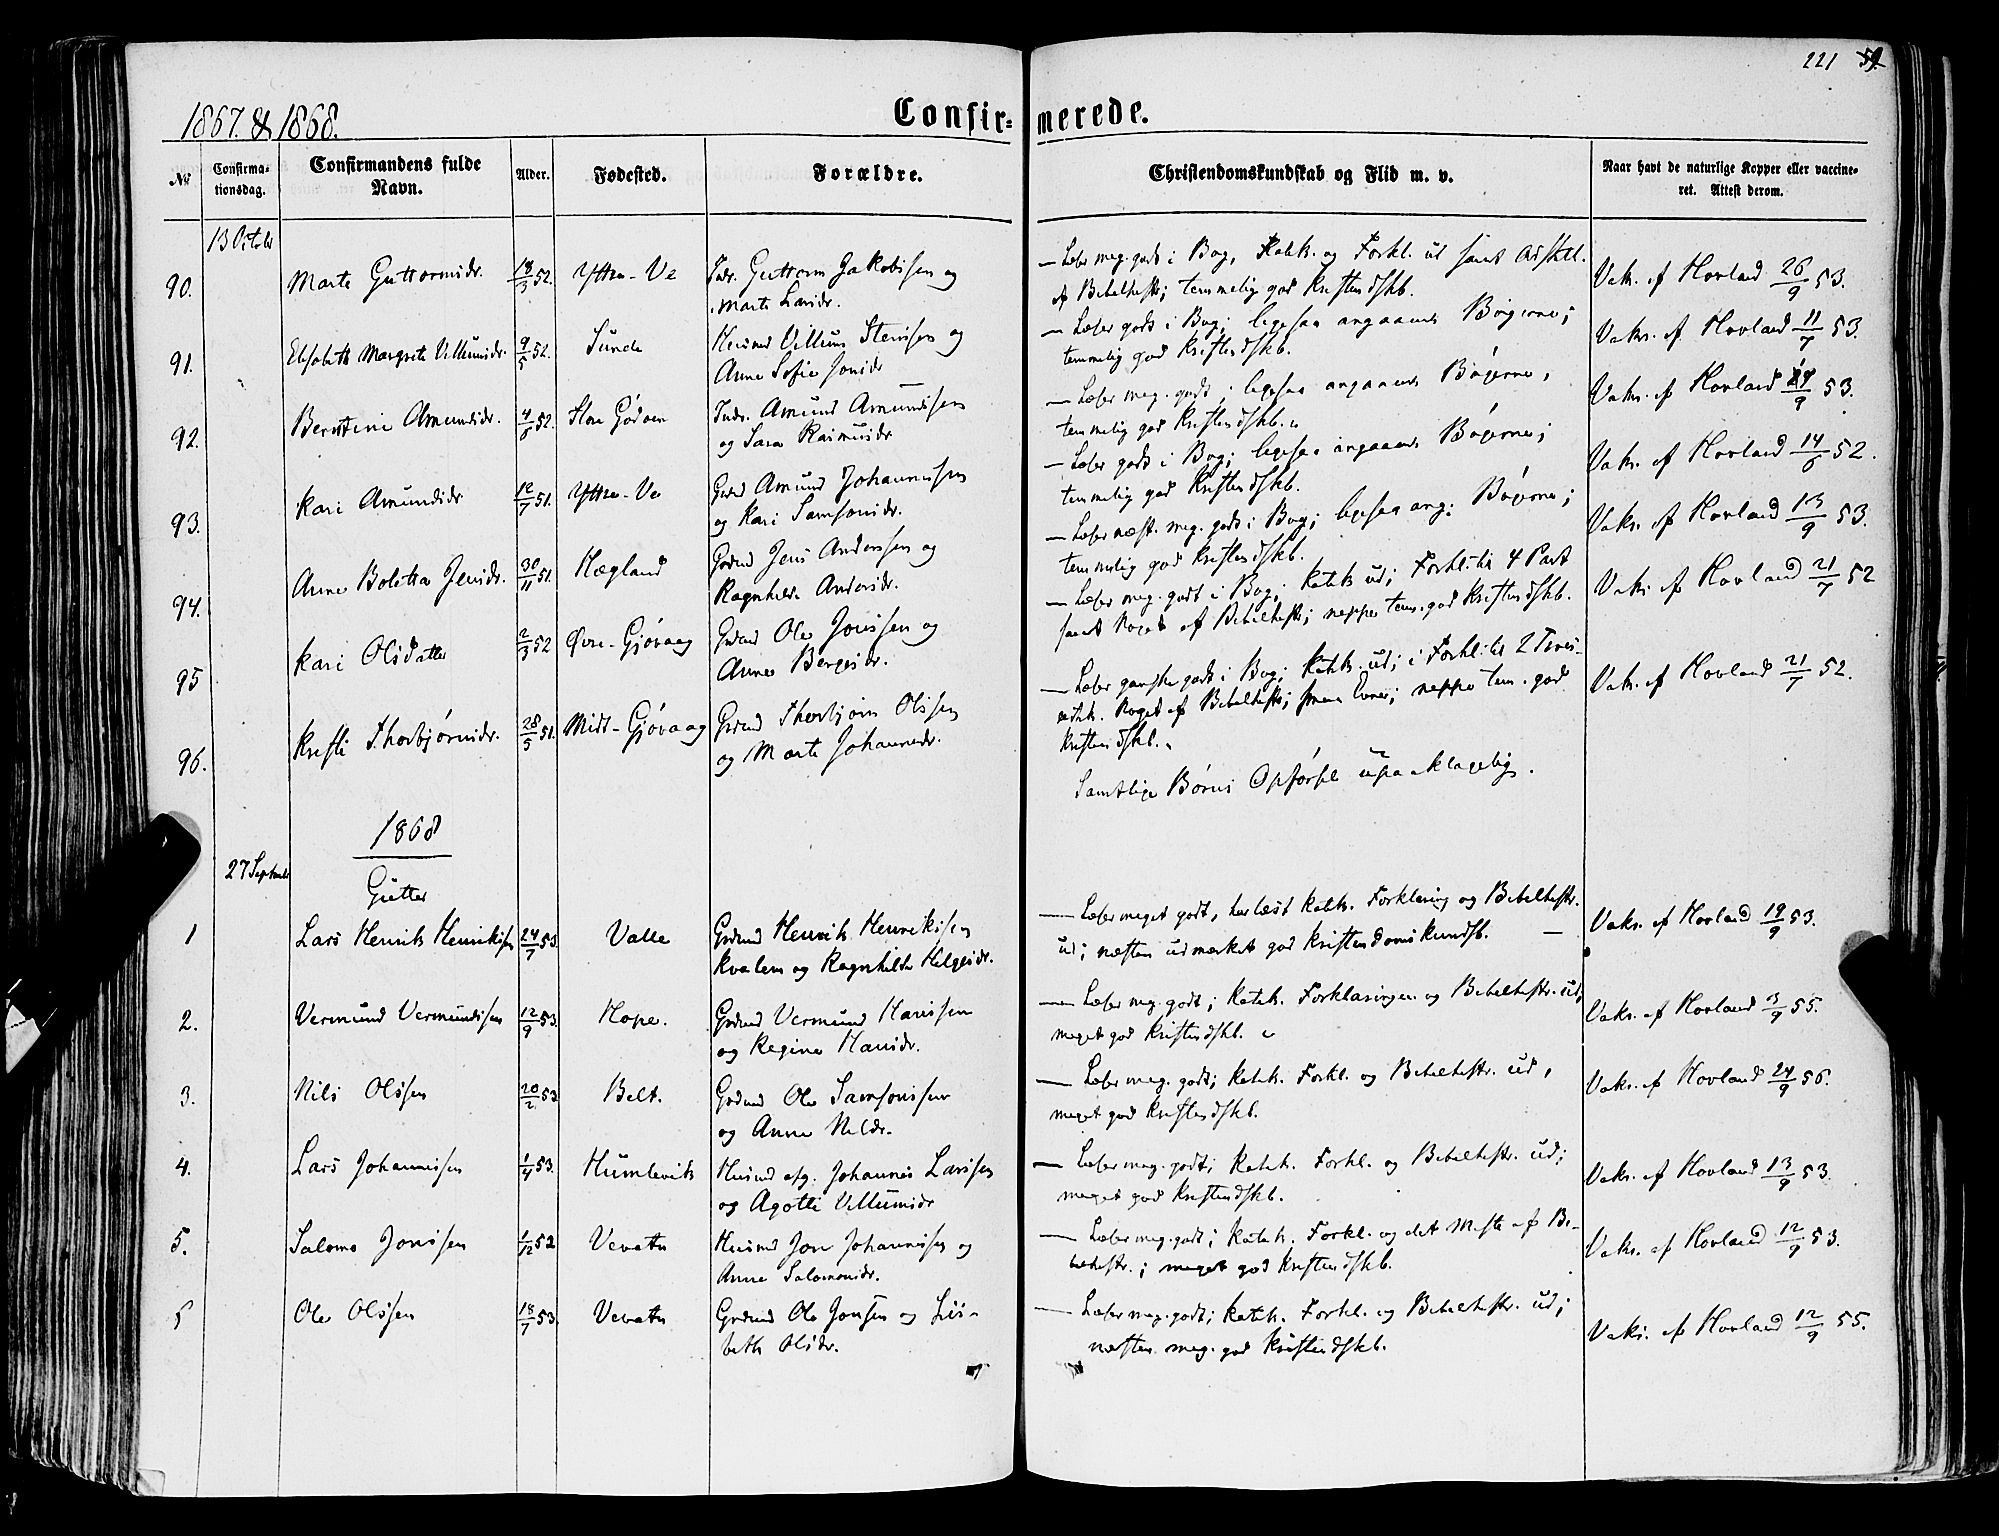 221 59.
1867. & 1868.
Confir- merede.
No
Confirma-
tionsdag.
Confirmandens fulde
Navn.
Alder.
Fødested.
Forældre.
Christendomskundskab og Flid m. v.
Naar havt de naturlige Kopper eller vaccine-
ret. Attest derom.
13 Octobr
90. Marta Guttormsdr. 18/3 52. Yttre-Ve Indr. Guttorm Jakobssen og
Marta Larsdr.
— Læser meg. godt i Bog, Katek. og Forkl. ud samt
af Bibelhistr; temmelig god Kristendskb.
Vaks. af Hovland 26/9 53.
91. Elisabeth Margrete Villumsdr. 9/5 52. Sunde Husmd Villum Stensen og
Anne Sofie Jonsdr
— Læser godt i Bog; ligesaa angaaende Bøgerne;
temmelig god Kristendskb.
Vaks. af Hovland 11/7 53.
92. Berntine Amundsdr. 4/6 52. Indr. Amund Amundssen
og Sara Rasmusdr
— Læser meg. godt; ligesaa angaaende Bøgerne,
temmelig god Kristendskb.
Vaks. af Hovland /9 53.
93. Kari Amundsdr 12/7 51. Yttre-Ve Grdmd Amund Johannessen
og Kari Samsonsdr.
— Læser godt i Bog; ligesaa angaaend Bøgerne;
temmelig god Kristendskb.
Vaks. af Hovland 14/6 52.
94. Anne Boletta Jensdr. 30/11 51. Hægland Grdmd Jens Andersen og
Ragnhilda Andersdr.
— Læser næst. meg. godt i Bog; ligesaa ang. Bøgerne;
temmelig god Kristendskb.
Vaks. af Hovland 13/9 53.
95 Kari Olsdatter 2/3 52 Øvre-Gjøvaag Grdmd Ole Jonssen og
Anne Bergesdr.
— Læser meg. godt i Bog; Katek ud; Forkl. til 4 Part
samt Noget af Bibelhistr; neppe tem. god Kristendskb.
Vaks. af Hovland 21/7 52
96. Kristi Thorbjørnsdr. 28/5 51. Midt-Gjøvaag Grdmd Thorbjørn Olssen
og Marta Johannesdr.
— Læser ganske godt i Bog; Katek. ud; i Forkl. til 2 Troes-
artik. Noget af Bibelhistr; smaa Evner; neppe tem. god
Kristendskb.
Vaks. af Hovland 21/7 52.
Samtlige Børns Opførsel upaaklagelig.
1868
27 Septembr
Gutter
1 Lars Henrik Henrikssen 24/7 53. Valle Grdmd Henrik Henrikssen
Kvalem og Ragnhilda Helgesdr.
— Læser meget godt, har læst Katek. Forklaring og Bibelhistr.
ud; næsten udmærket god Kristendomskundsk. —
Vaks. af Hovland 19/9 53.
2. Vermund Vermundssen 12/9 53. Hope. Grdmd Vermund Hanssen
og Regine Hansdr.
— Læser meg. godt; Katek. Forklaringen og Bibelhistr. ud;
meget god Kristendskb.
Vaks. af Hovland 3/9 55.
3. Nils Olssen 20/2 53 Belt. Grdmd Ole Samsonssen
og Anne Nilsdr.
— Læser meg. godt; Katek. Forkl. og Bibelhistr. ud,
meget god Kristendskb.
Vaks. af Hovland 24/9 56.
4. Lars Johannessen 1/4 53. Humlevik Husmd afg. Johannes Larssen
og Agotte Villumsdr
— Læser meg. godt; Katek. Forkl. og Bibelhistr. ud;
meget god Kristendskb.
Vaks. af Hovland 13/9 53.
5. Salomo Jonssen 1/12 52 Vevatn Husmd Jon Johannessen og
Anna Salomonsdr.
— Læser meg. godt; Katek. Forkl. og det Meste af Bi-
belhistr.; meget god Kristendskb.
Vaks. af Hovland 12/9 53.
Ole Olssen 18/7 53. Vevatn Grdmd Ole Jonsen og Lis-
beth Olsdr.
— Læser meg. godt; Katek. Forkl. og Bibelhistr. ud;
næsten meg. god Kristendskb.
Vaks. af Hovland 12/9 55.